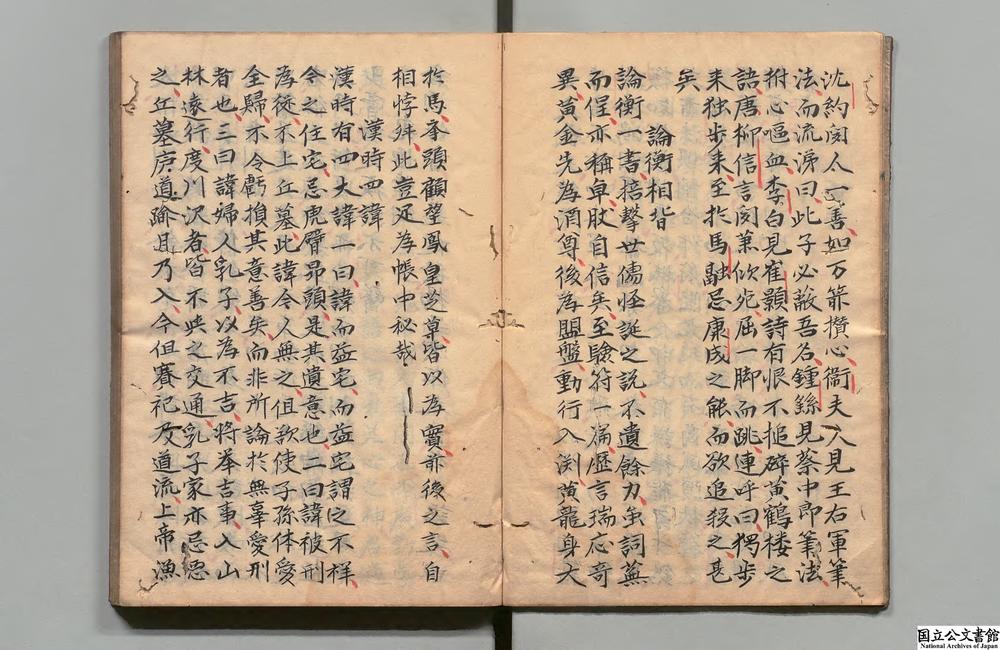 沈約閔人一善如万箭攢心衞夫人入見王右軍筆
法而流涕曰此子必蔽吾名鍾繇見蔡中郎筆法
拊心嘔血李白見崔顥詩有恨不搥碎黃鶴楼之
語唐柳信言閔蕭欣宛屈一脚而跳連呼曰獨步
来独步来至於馬融忌康成之能而欲追殺之甚
矣
論衡相背
論衡一書掊擊世儒怪誕之説不遺餘力虽詞蕪
而俚亦稱卓肰自信矣至驗符一篇歴言瑞応奇
異黃金先為酒尊後為盟盤動行入渕黃龍身大
於馬夆頭顧望鳳皇芝草皆以為實前後之言自
相悖舛此豈足為帳中秘哉
漢時四諱
漢時有四大諱一曰諱而益宅而益宅謂之不祥
今之住宅忌虎臂昻頭是其遺意也二曰諱被刑
為徒不上丘墓此諱令人無之但欲使子孫体愛
全歸不令虧損其意善矣而非所論於無辜愛刑
者也三曰諱婦人乳子以為不吉將举吉事入山
林遠行度川沢者皆不與之交通乳子家亦忌悪
之丘墓庐道踰且乃入今但賽祀及道流上帝漁
国立公文書館
National Archives of Japan